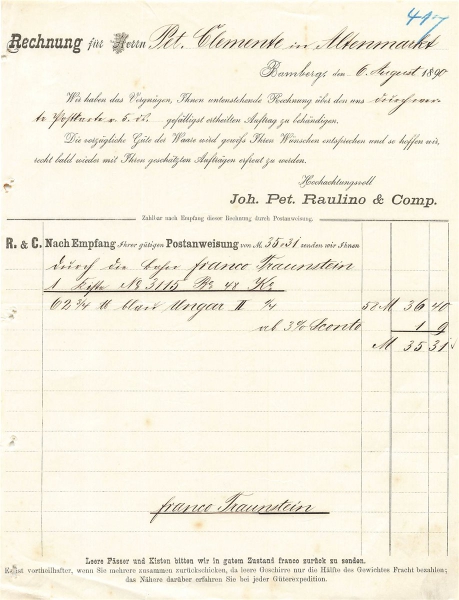 Rechnung für Herrn Pet. Clemente in Altenmarkt
Bamberg, den 6. August 1890
Wir haben das Vergnügen, Ihnen untenstehende Rechnung über den uns durch
Postkarte v. 5. ds. gefälligst ertheilten Auftrag zu behändigen.
Die vorzügliche Güte der Waare wird gewiß Ihren Wünschen entsprechen und so hoffen wir,
recht bald wieder mit Ihren geschätzten Aufträgen erfreut zu werden.
Hochachtungsvoll
Joh. Pet. Raulino & Comp.
Zahlbar nach Empfang dieser Rechnung durch Postanweisung.
R. & C. Nach Empfang Ihrer gütigen Postanweisung von M. 35.31 senden wir Ihnen
durch die Bahn franco Traunstein
1 Kiste No 3115
62 3/4 blau Ungar II 58 M 36 40
ab 3% Sconto 1 9
M 35 31
franco Traunstein
Leere Fässer und Kisten bitten wir in gutem Zustand franco zurück zu senden.
Es ist vortheilhafter, wenn Sie mehrere zusammen zurückschicken, da leere Geschirre nur die Hälfte des Gewichtes Fracht bezahlen;
das Nähere darüber erfahren Sie bei jeder Güterexpedition.